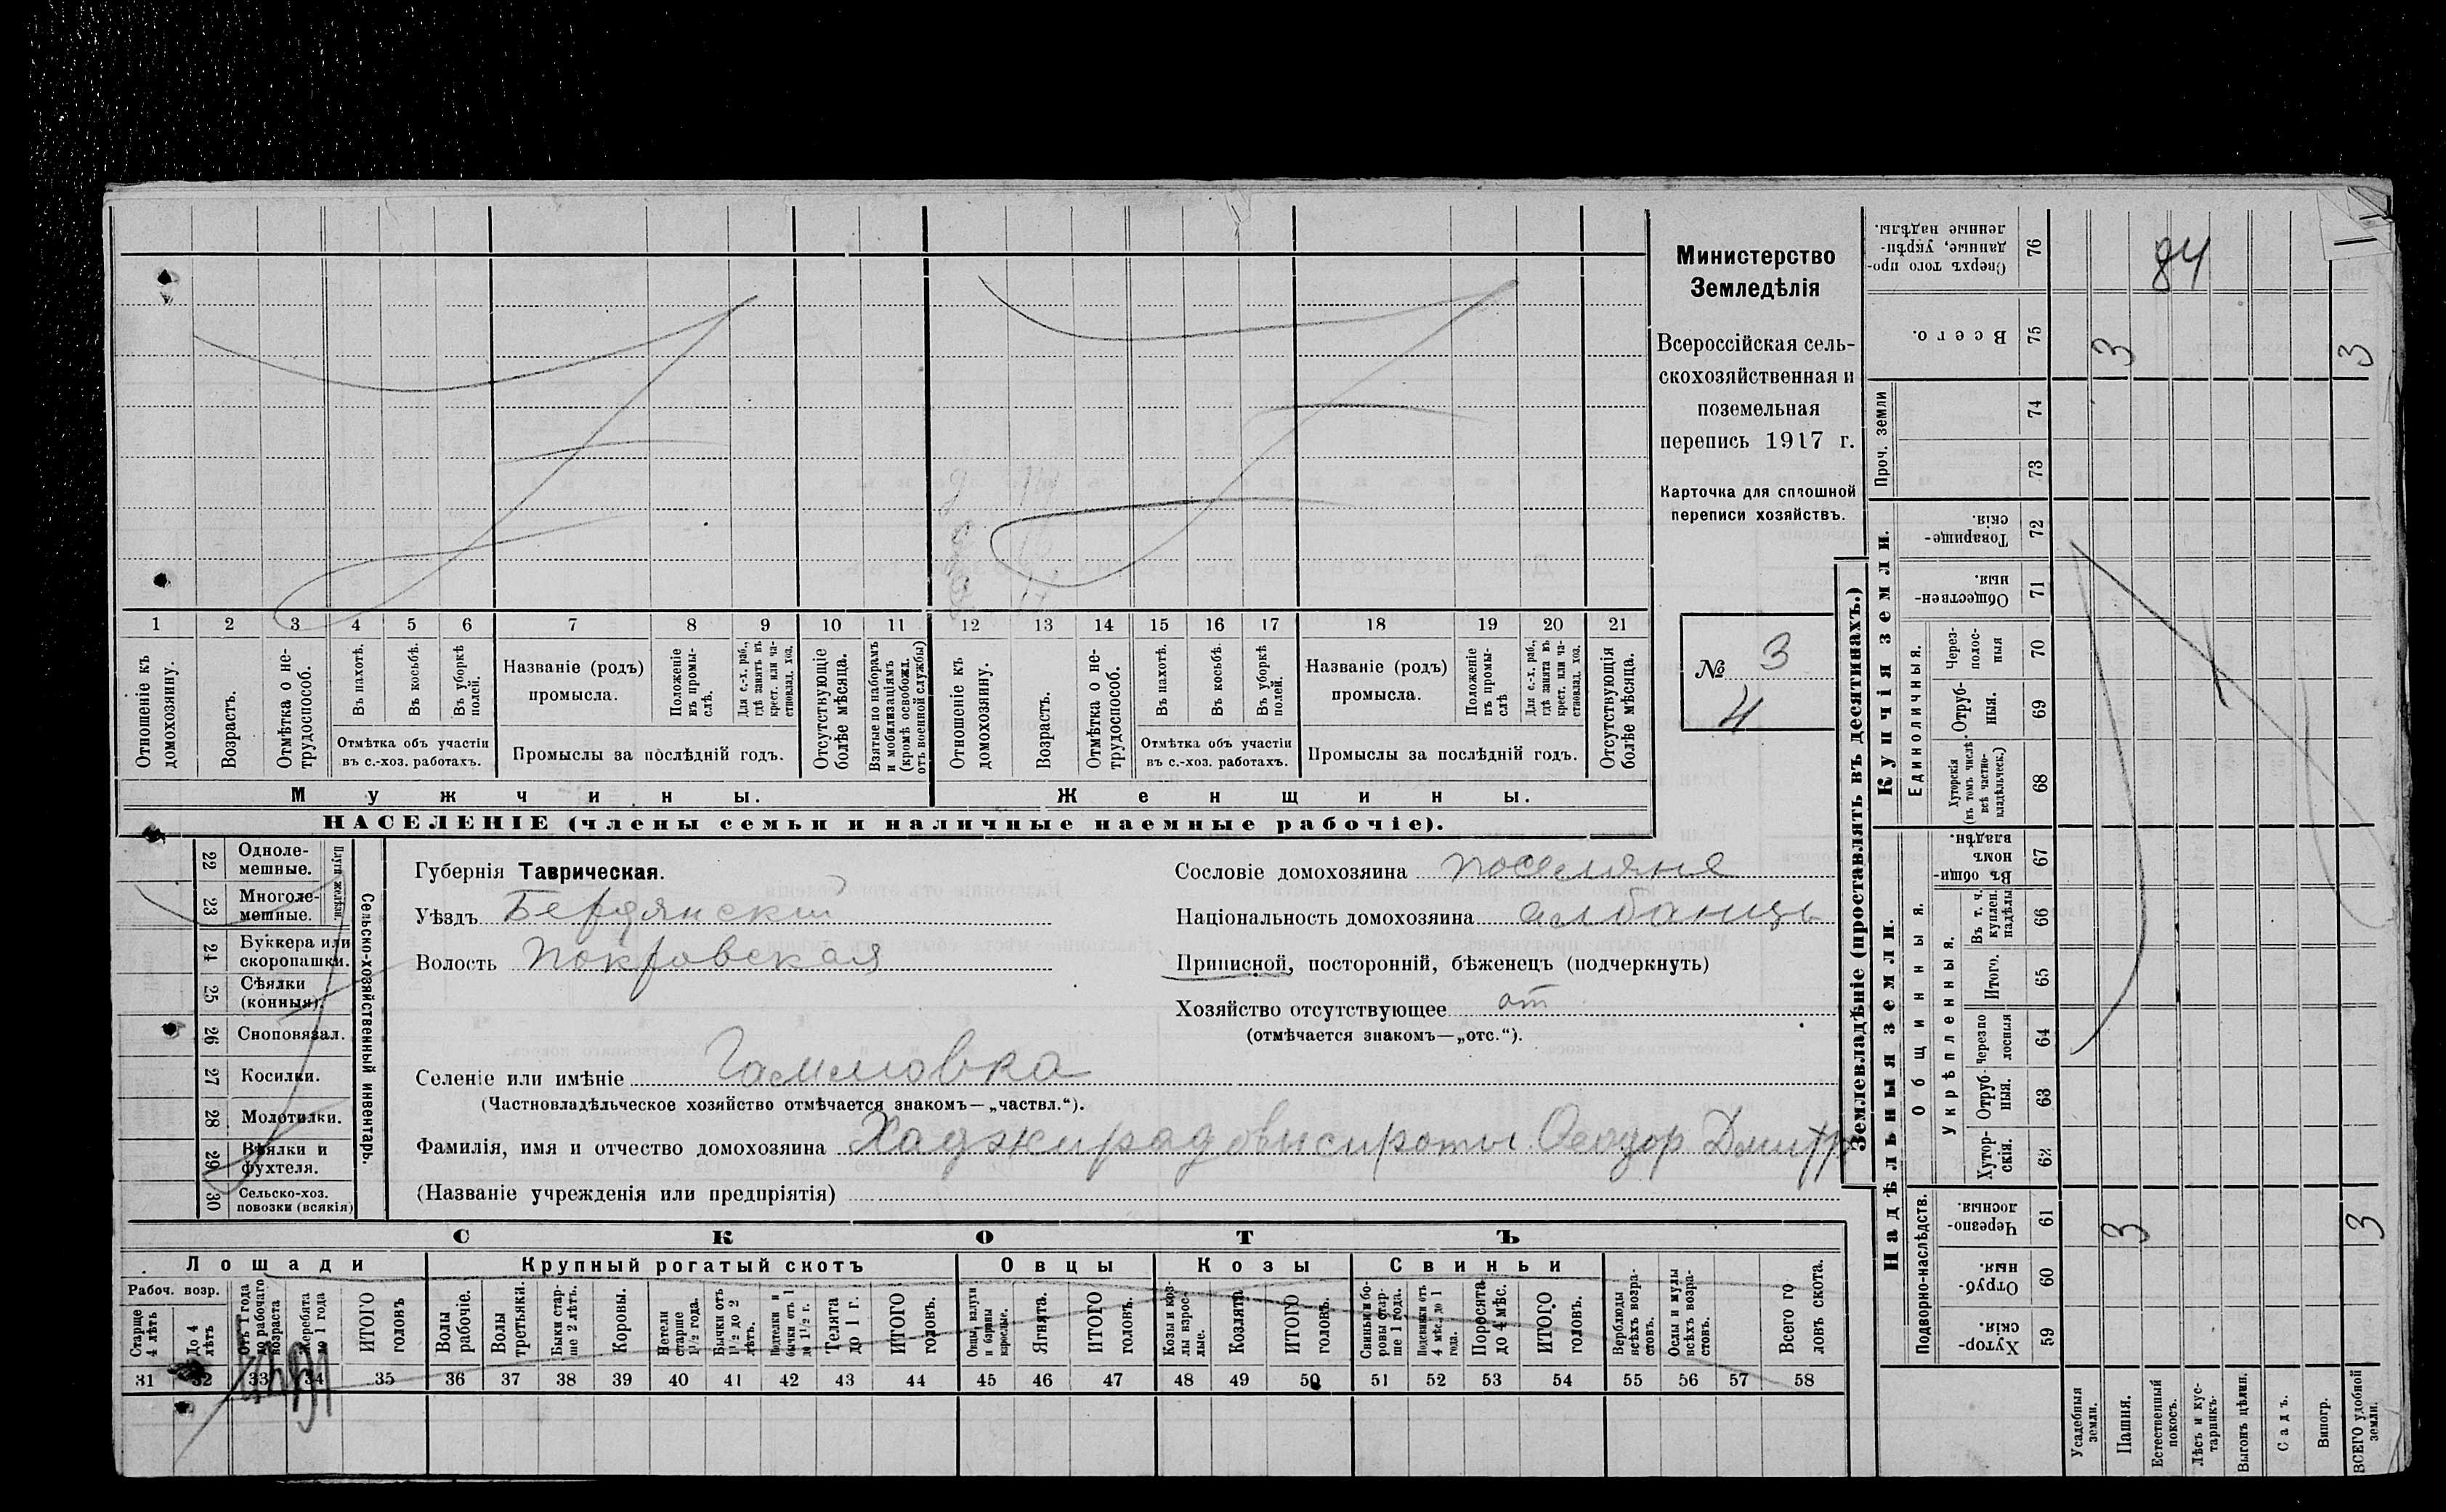 Министерство
Земледѣлія
Всероссійская сель-
скохозяйственная и
поземельная
перепись 1917 г.
Карточка для сплошной
переписи хозяйствъ.
№ 3
4
1 2 3 4 5 6 7 8 9 10 11 12 13 14 15 16 17 18 19 20 21
Отношеніе къ домохозяину.
Возрастъ.
Отмѣтка о не-трудоспособ.
Въ пахотѣ.
Въ косьбѣ.
Въ уборкѣ полей.
Отмѣтка объ участіи
въ с.-хоз. работахъ.
Названіе (родъ)
промысла.
Положеніе въ промы-слѣ.
Для с.-х. раб., гдѣ занятъ въ крест. или ча-стновлад. хоз.
Промыслы за послѣдній годъ.
Отсутствующіе болѣе мѣсяца.
Взятые по наборамъ и мобилизаціямъ (кромѣ освобожд. отъ военной службы)
Отношеніе къ домохозяину.
Возрастъ.
Отмѣтка о не-трудоспособ.
Въ пахотѣ.
Въ косьбѣ.
Въ уборкѣ полей.
Отмѣтка объ участіи
въ с.-хоз. работахъ.
Названіе (родъ)
промысла.
Положеніе въ промы-слѣ
Для с.-х. раб., гдѣ занята въ крест. или ча-стновлад. хоз.
Промыслы за послѣдній годъ.
Отсутствующія болѣе мѣсяца.
Мужчины.
Женщины.
НАСЕЛЕНІЕ (члены семьи и наличные наемные рабочіе).
Сельско-хозяйственный инвентарь.
Плуги желѣзн.
22 Одноле-мешные.
23 Многоле-мешные.
24 Буккера или скоропашки.
25 Сѣялки (конныя).
26 Сноповязал.
27 Косилки.
28 Молотилки.
29 Вѣялки и фухтеля.
30 Сельско-хоз. повозки (всякія)
Губернія Таврическая.
Уѣздъ Бердянскій
Волость Покровская
Селеніе или имѣніе Гаммовка
(Частновладѣльческое хозяйство отмѣчается знакомъ—„частвл.“).
Сословіе домохозяина поселяне
Національность домохозяина албанцы
Приписной, посторонній, бѣженецъ (подчеркнуть)
Хозяйство отсутствующее от
(отмѣчается знакомъ—„отс.“).
Фамилія, имя и отчество домохозяина Хаджирадовы сироты Феодор Дмитр
(Названіе учрежденія или предпріятія)
СКОТЪ
Лошади
Крупный рогатый скотъ
Овцы
Козы
Свиньи
Рабоч. возр.
Старше 4 лѣтъ
До 4 лѣтъ
Отъ 1 года до рабочаго возраста
Жеребята до 1 года
ИТОГО головъ
Волы рабочіе.
Волы третьяки.
Быки стар-ше 2 лѣтъ.
Коровы.
Нетели старше 1½ года.
Бычки отъ 1½ до 2 лѣтъ.
Подтелки и бычки отъ 1 до 1½ г.
Телята до 1 г.
ИТОГО головъ.
Овцы, валухи и бараны взрослые.
Ягнята.
ИТОГО головъ.
Козы и коз-лы взрос-лые.
Козлята
ИТОГО головъ.
Свиньи и бо-ровы стар-ше 1 года.
Подсвинки отъ 4 мѣс. до 1 года.
Поросята до 4 мѣс.
ИТОГО головъ.
Верблюды всѣхъ возра-стовъ.
Ослы и мулы всѣхъ возра-стовъ.
Всего го-ловъ скота.
31 32 33 34 35 36 37 38 39 40 41 42 43 44 45 46 47 48 49 50 51 52 53 54 55 56 57 58
Землевладѣніе (проставлять въ десятинахъ.)
Надѣльныя земли.
Купчія земли.
Проч. земли
Подворно-наслѣдств.
Общинныя.
Укрѣпленныя.
Единоличныя.
Хутор-скія. 59
Отруб-ныя. 60
Черезпо-лосныя. 61
Хутор-скія. 62
Отруб-ныя. 63
Черезпо-лосныя 64
Итого. 65
Въ т. ч. куплен. надѣлы 66
Въ общин-номъ владѣн. 67
Хуторскія (въ томъ числѣ всѣ частно-владѣльческ.) 68
Отруб-ныя. 69
Через-полос-ныя 70
Обществен-ныя. 71
Товарище-скія. 72
73
74
Всего. 75
Сверхъ того про-данные, укрѣп-ленные надѣлы. 76
84
3 3
3 3
Усадебныя земли.
Пашня.
Естественный покосъ.
Лѣсъ и кус-тарникъ.
Выгонъ цѣлин.
Садъ.
Виногр.
ВСЕГО удобной земли.